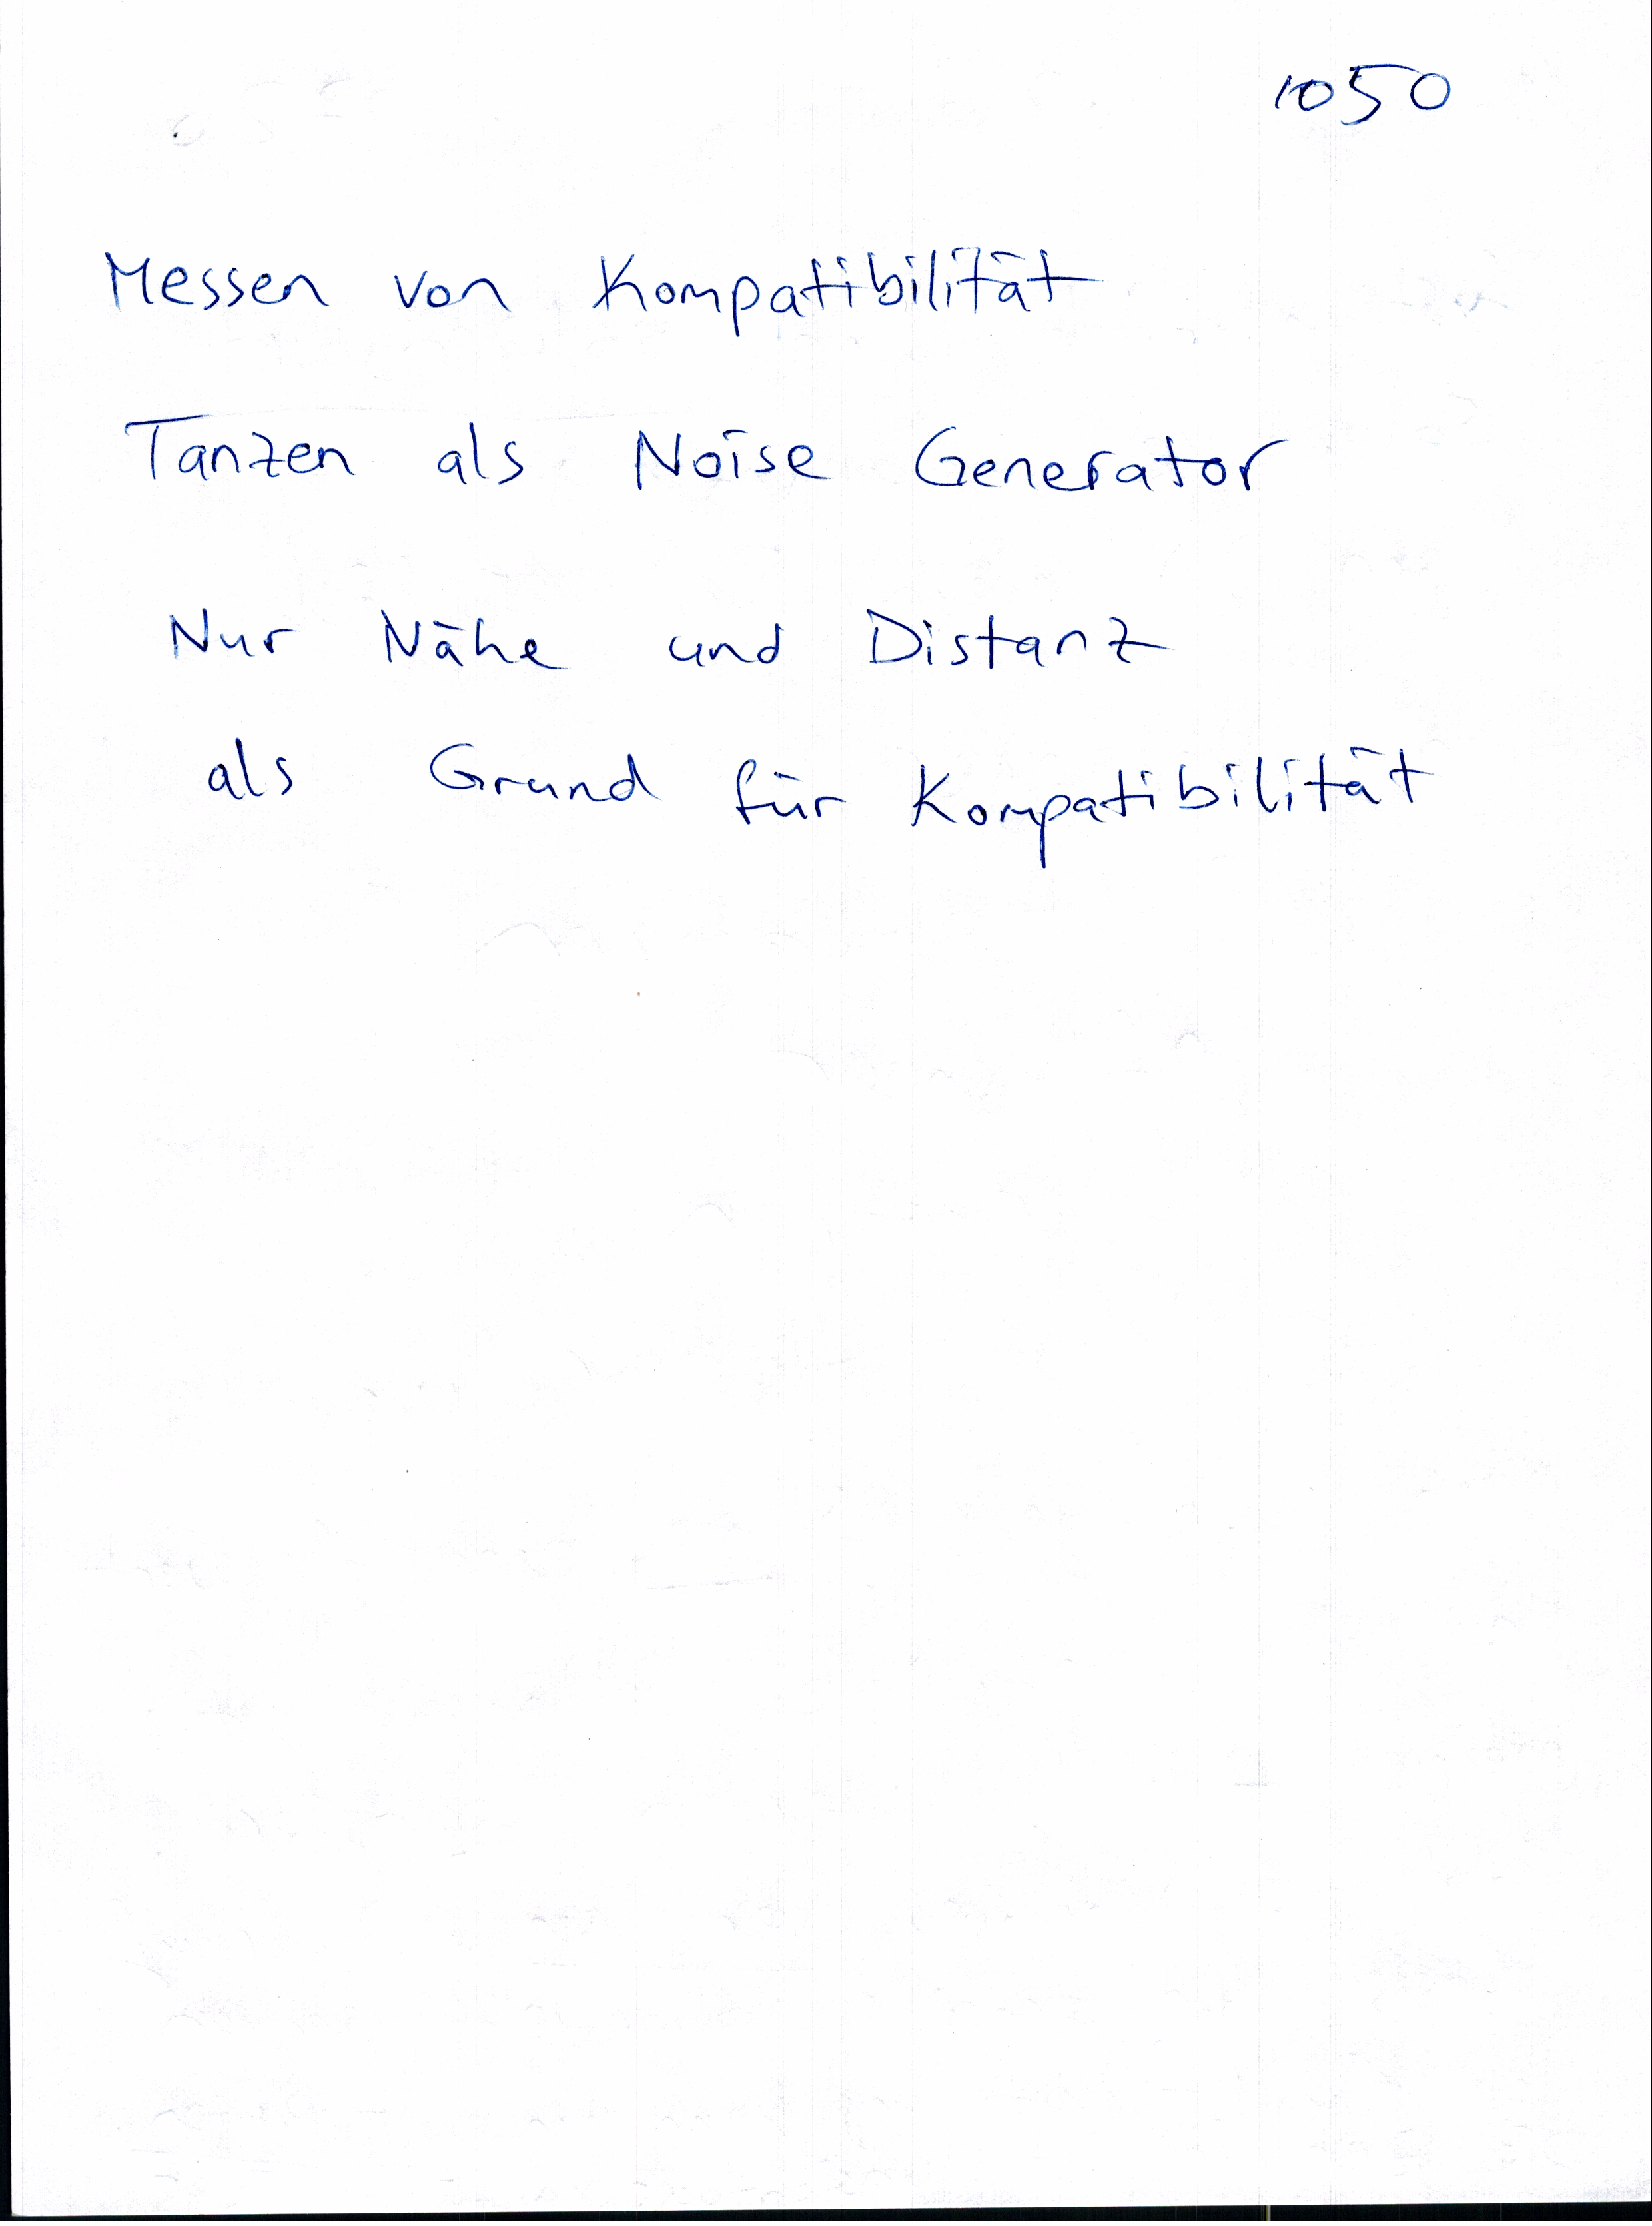 1050
Messen von Kompatibilität
Tanzen als Noise Generator
Nur Nähe und Distanz
als Grund für Kompatibilität